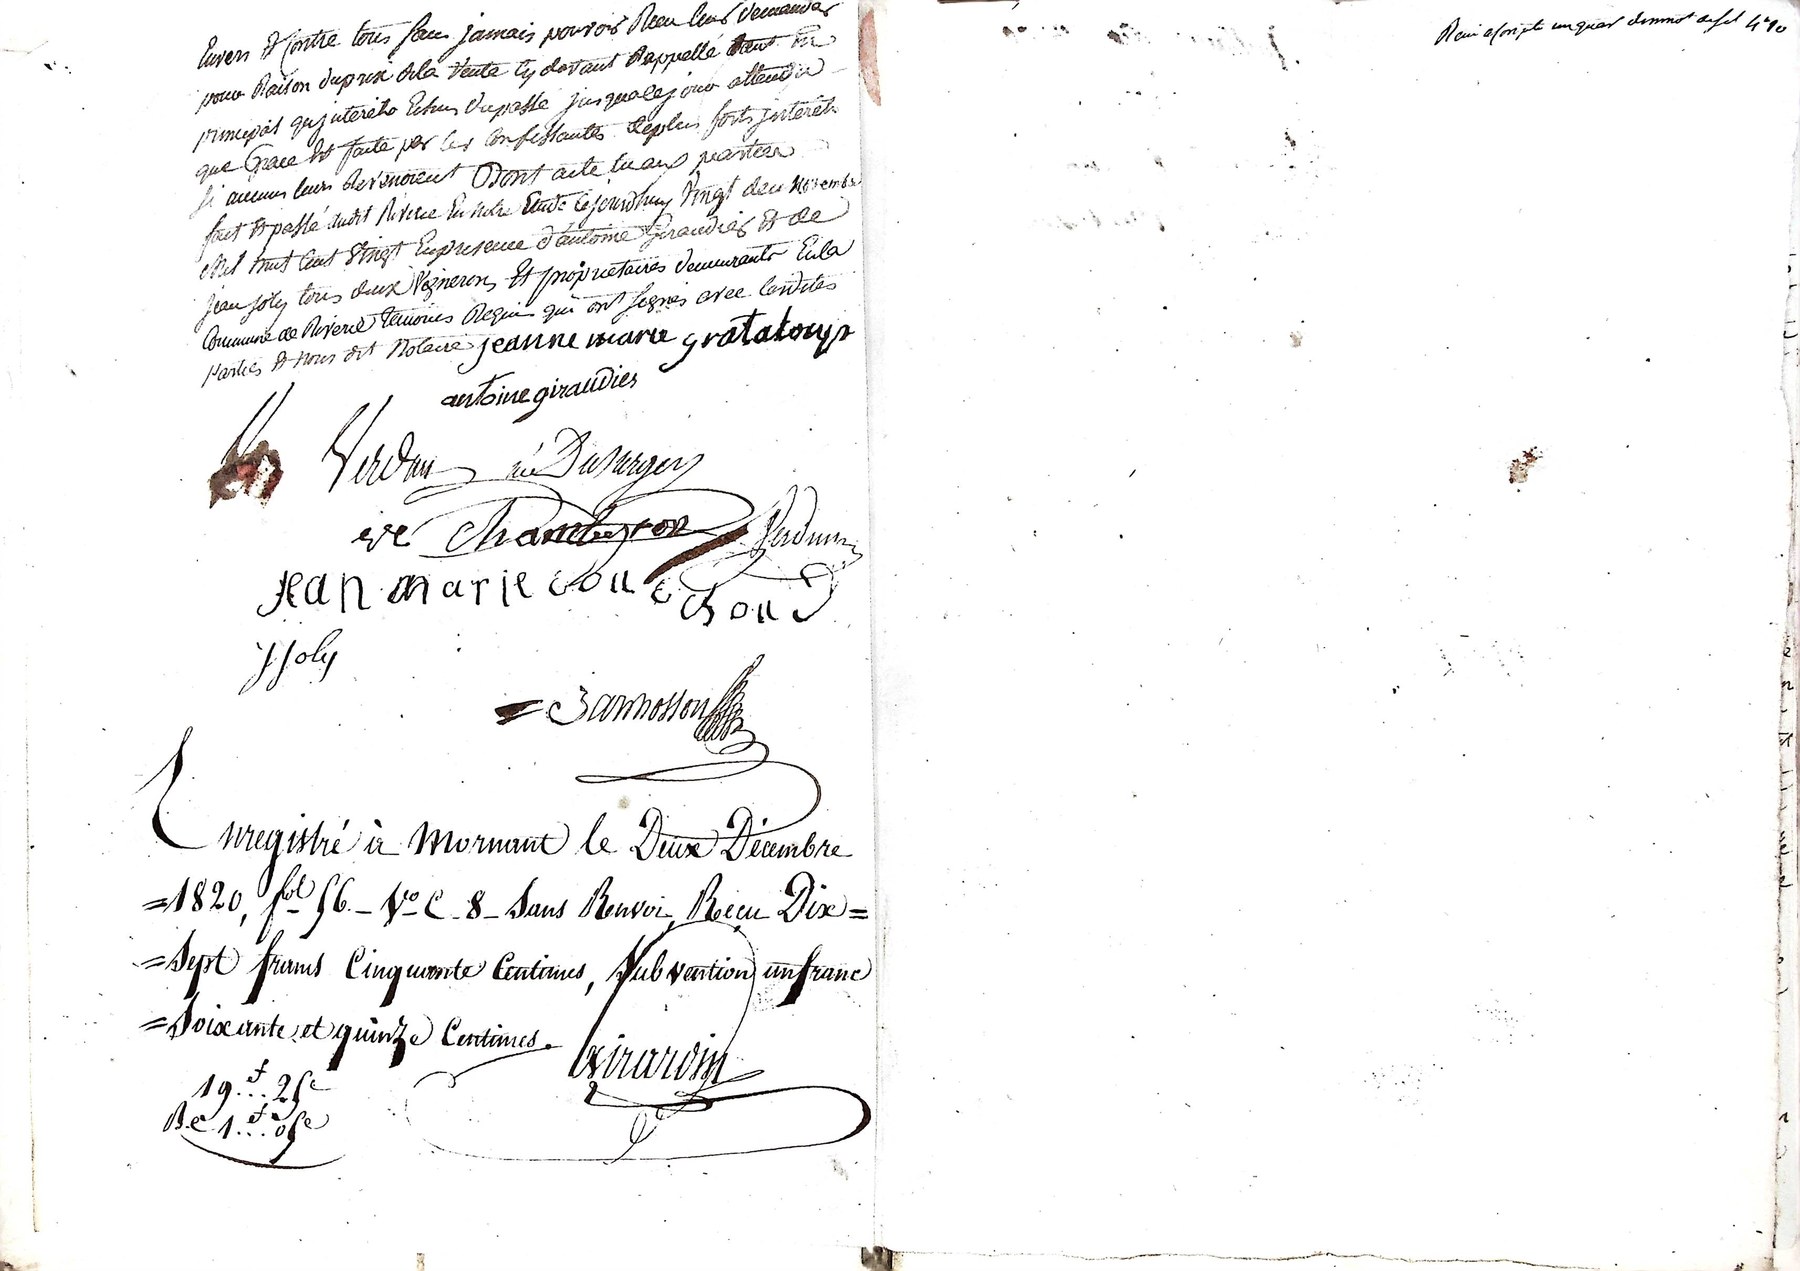 Envers et Contre tous sans jamais pouvoir Rien leur demander
pour Raison du prix de la Vente cy devant Rappellé tant en
principal qu'interets Echus du passé jusqua ce jour attendu
que Grace est faite par les Confessants de plus forts interets
si aucuns leurs Revenoient Dont acte lu aux parties
fait et passé audit Riverie En notre Etude cejourdhuy Vingt deux Novembre
Mil huit Cent Vingt En presence d'antoine Giraudier et de
jean joly tous deux Vignerons Et proprietaires demeurants En la
Commune de Riverie temoins Requis qui ont signés avec lesdites
parties et nous dit Notaire jeanne marie grataloup
antoine giraudier
Verdun née Dusurgey
Chambeyron Verdun
jean marie couchoud
j joly
Enregistré à Mornant le Deux Décembre
=1820, fol 56 - Vo C. 8 - Sans Renvoi, Reçu Dix=
=Sept francs Cinquante Centimes, Subvention un franc
=Soixante et quinze Centimes.
Girardin
19f...25c
1f...05c